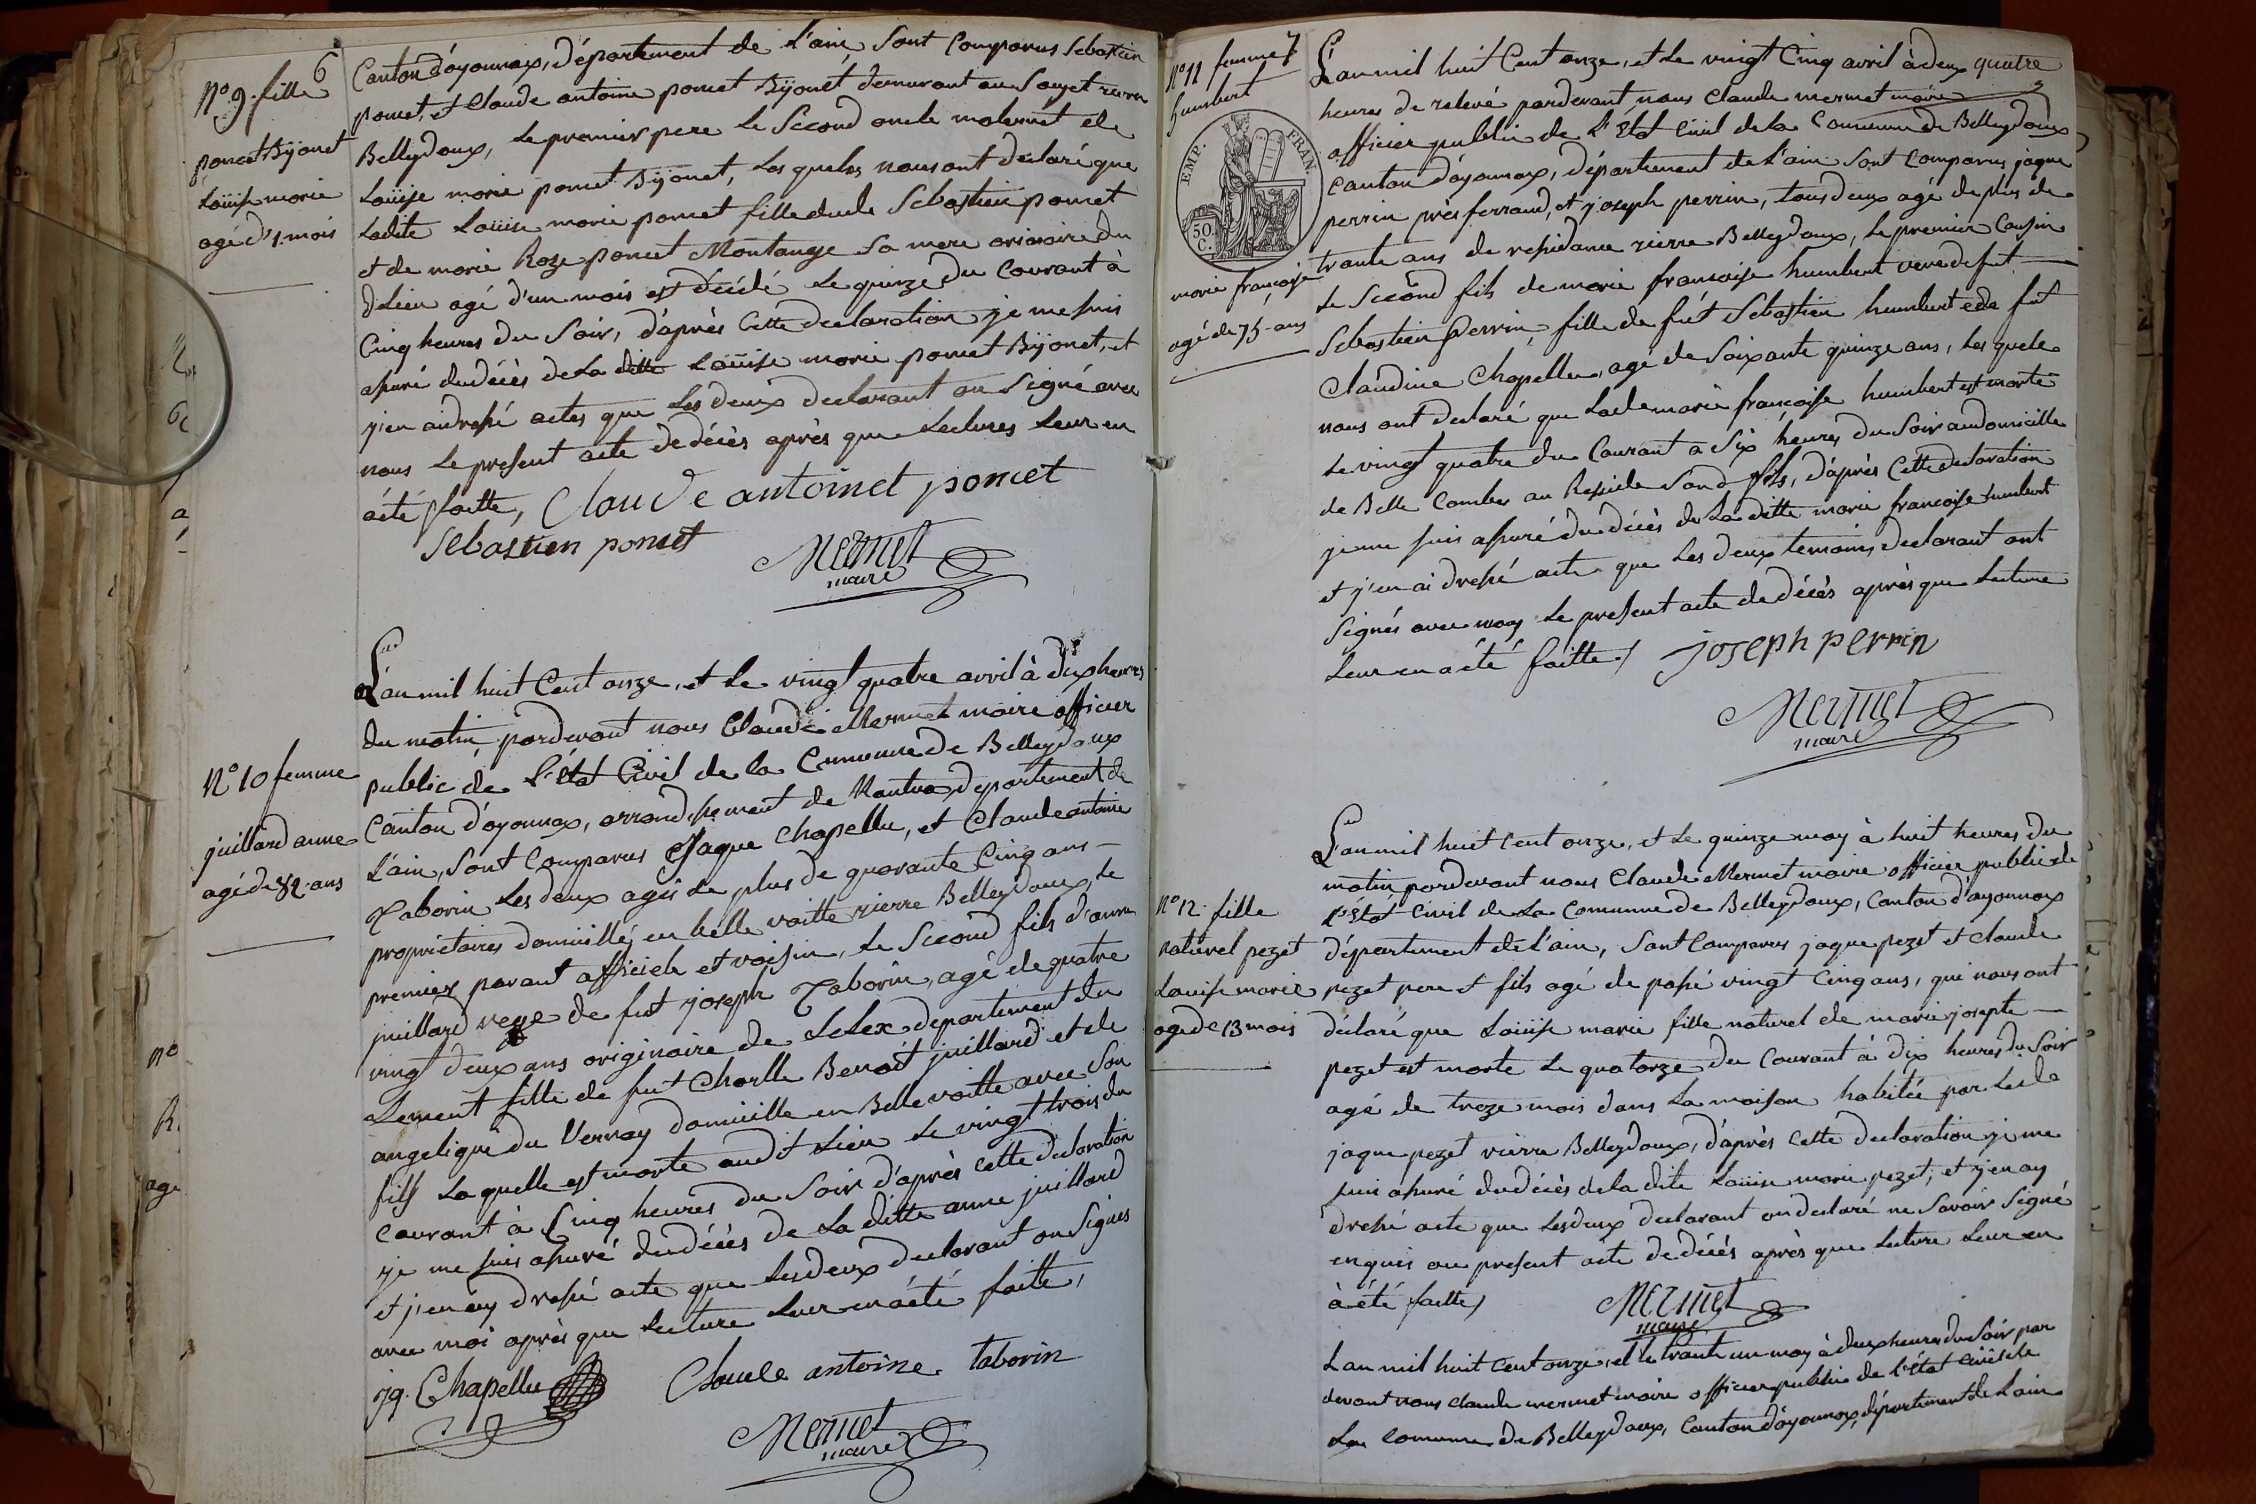 6
N° 9. fille
poncet Bijonet
Loüise marie
agé d'1 mois
Canton d'oyonnax, département de l'ain, sont Comparus Sebastien
poncet, et Claude antoine poncet Bijonet, demeurant au Souget rierre
Belleydoux, le premier pere le Second oncle maternel de
Loüise marie poncet Bijonet, les quels nous ont declaré que
ladite Loüise marie poncet fille dud. Sebastien poncet
et de marie Roze poncet Montange sa mere originaire du
d. Lieu agé d'un mois est décédé le quinze du Courant à
Cinq heures du Soir, d'après Cette declaration je me suis
assuré du décès de la ditte Loüise marie poncet Bijonet, et
j'en ai dressé actes que les deux declarant on Signé avec
nous le present acte de décès après que lectures leur en
àété faitte, Claude antoinet poncet
Sebastien poncet
Mermet
maire
N° 10 femme
juillard anne
agé de 82 ans
L'an mil huit Cent onze, et le vingt quatre avril à dix heures
du matin, pardevant nous Claude Mermet maire officier
public de l'état Civil de la Commune de Belleydoux
Canton d'oyonnax, arrondissement de Nantua, departement de
l'ain, Sont Comparus Jaque Chapellu, et Claude antoine
Taborin les deux agés de plus de quarante Cinq ans
proprietaires domicillés en belle voitte rierre Belleydoux, le
premier parant affiede et voisin, le Second fils d'anne
juillard veve de fut joseph Taborin, agé de quatre
vingt deux ans originaire de Lelex departement du
Lement fille de fut Charlle Benoit juillard et de
angelique du Vernay domicille en Belle voitte avec Son
fils la quelle est morte audit Lieu le vingt trois du
Courant à Cinq heures du Soir d'après cette declaration
je me suis assuré du décès de la ditte anne juillard
et j'en ay dressé acte que les deux declarant on Signés
avec moi après que lecture leur en àété faitte,
jq. Chapellu
Claude antoine taborin
Mermet
maire
7
N° 11 femme
humbert
EMP. FRAN.
50. C.
marie françoise
agé de 75 ans
L'an mil huit Cent onze, et le vingt Cinq avril à deux quatre
heures de relevé pardevant nous Claude mermet maire
officier public de l'état Civil de la Commune de Belleydoux
Canton d'oyonnax, département de l'ain Sont Comparus jaque
perrin près ferraud, et joseph perrin, tous deux agé de plus de
trante ans de residance rierre Belleydoux, le premier Cousin
le Second fils de marie francoise humbert veve de fut
Sebastien perrin, fille de fut Sebastien humbert et de fut
Claudine Chapellu, agé de Soixante quinze ans, les quels
nous ont declaré que lad. marie françoise humbert est morte
le vingt quatre du Courant a Six heures du Soir au domicille
de Belle Combes au Reside Sond. fils, d'après Cette declaration
je me suis assuré du décès de la ditte marie françoise humbert
et j'en ai dressé acte que les deux temoins declarant ont
Signés avec moy le present acte de décès après que lecture
leur en àété faitte / joseph perrin
Mermet
maire
N° 12 fille
naturel pezet
Louise marie
agé de 13 mois
L'an mil huit Cent onze, et le quinze may à huit heures du
matin pardevant nous Claude Mermet maire officier public de
l'état Civil de la Commune de Belleydoux, Canton d'oyonnax
département de l'ain, Sont Comparus jaque pezet et Claude
pezet pere et fils agé de passé vingt Cinq ans, qui nous ont
déclaré que Loüise marie fille naturel de marie josepte
pezet est morte le quatorze du Courant à dix heures du Soir
agé de treze mois dans la maison habitée par led.
jaque pezet rierre Belleydoux, d'après Cette declaration je me
suis assuré du décès de la dite Loüise marie pezet; et j'en ay
dressé acte que les deux declarant on declaré ne Savoir Signé
enquis au present acte de décès après que lecture leur en
à été faitte /
Mermet
maire
L'an mil huit Cent onze, et le trante un may à deux heures du Soir par
devant nous Claude mermet maire officier public de l'état Civil de
la Comune de Belleydoux, Canton d'oyonnax, département de l'ain